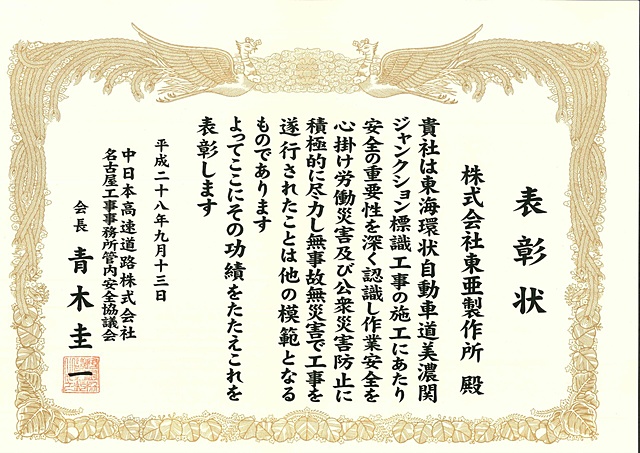 表彰状
株式会社東亜製作所 殿
貴社は東海環状自動車道美濃関
ジャンクション標識工事の施工にあたり
安全の重要性を深く認識し作業安全を
心掛け労働災害及び公衆災害防止に
積極的に尽力し無事故無災害で工事を
遂行されたことは他の模範となる
ものであります
よってここにその功績をたたえこれを
表彰します
平成二十八年九月十三日
中日本高速道路株式会社
名古屋工事事務所管内安全協議会
会長 青木圭一